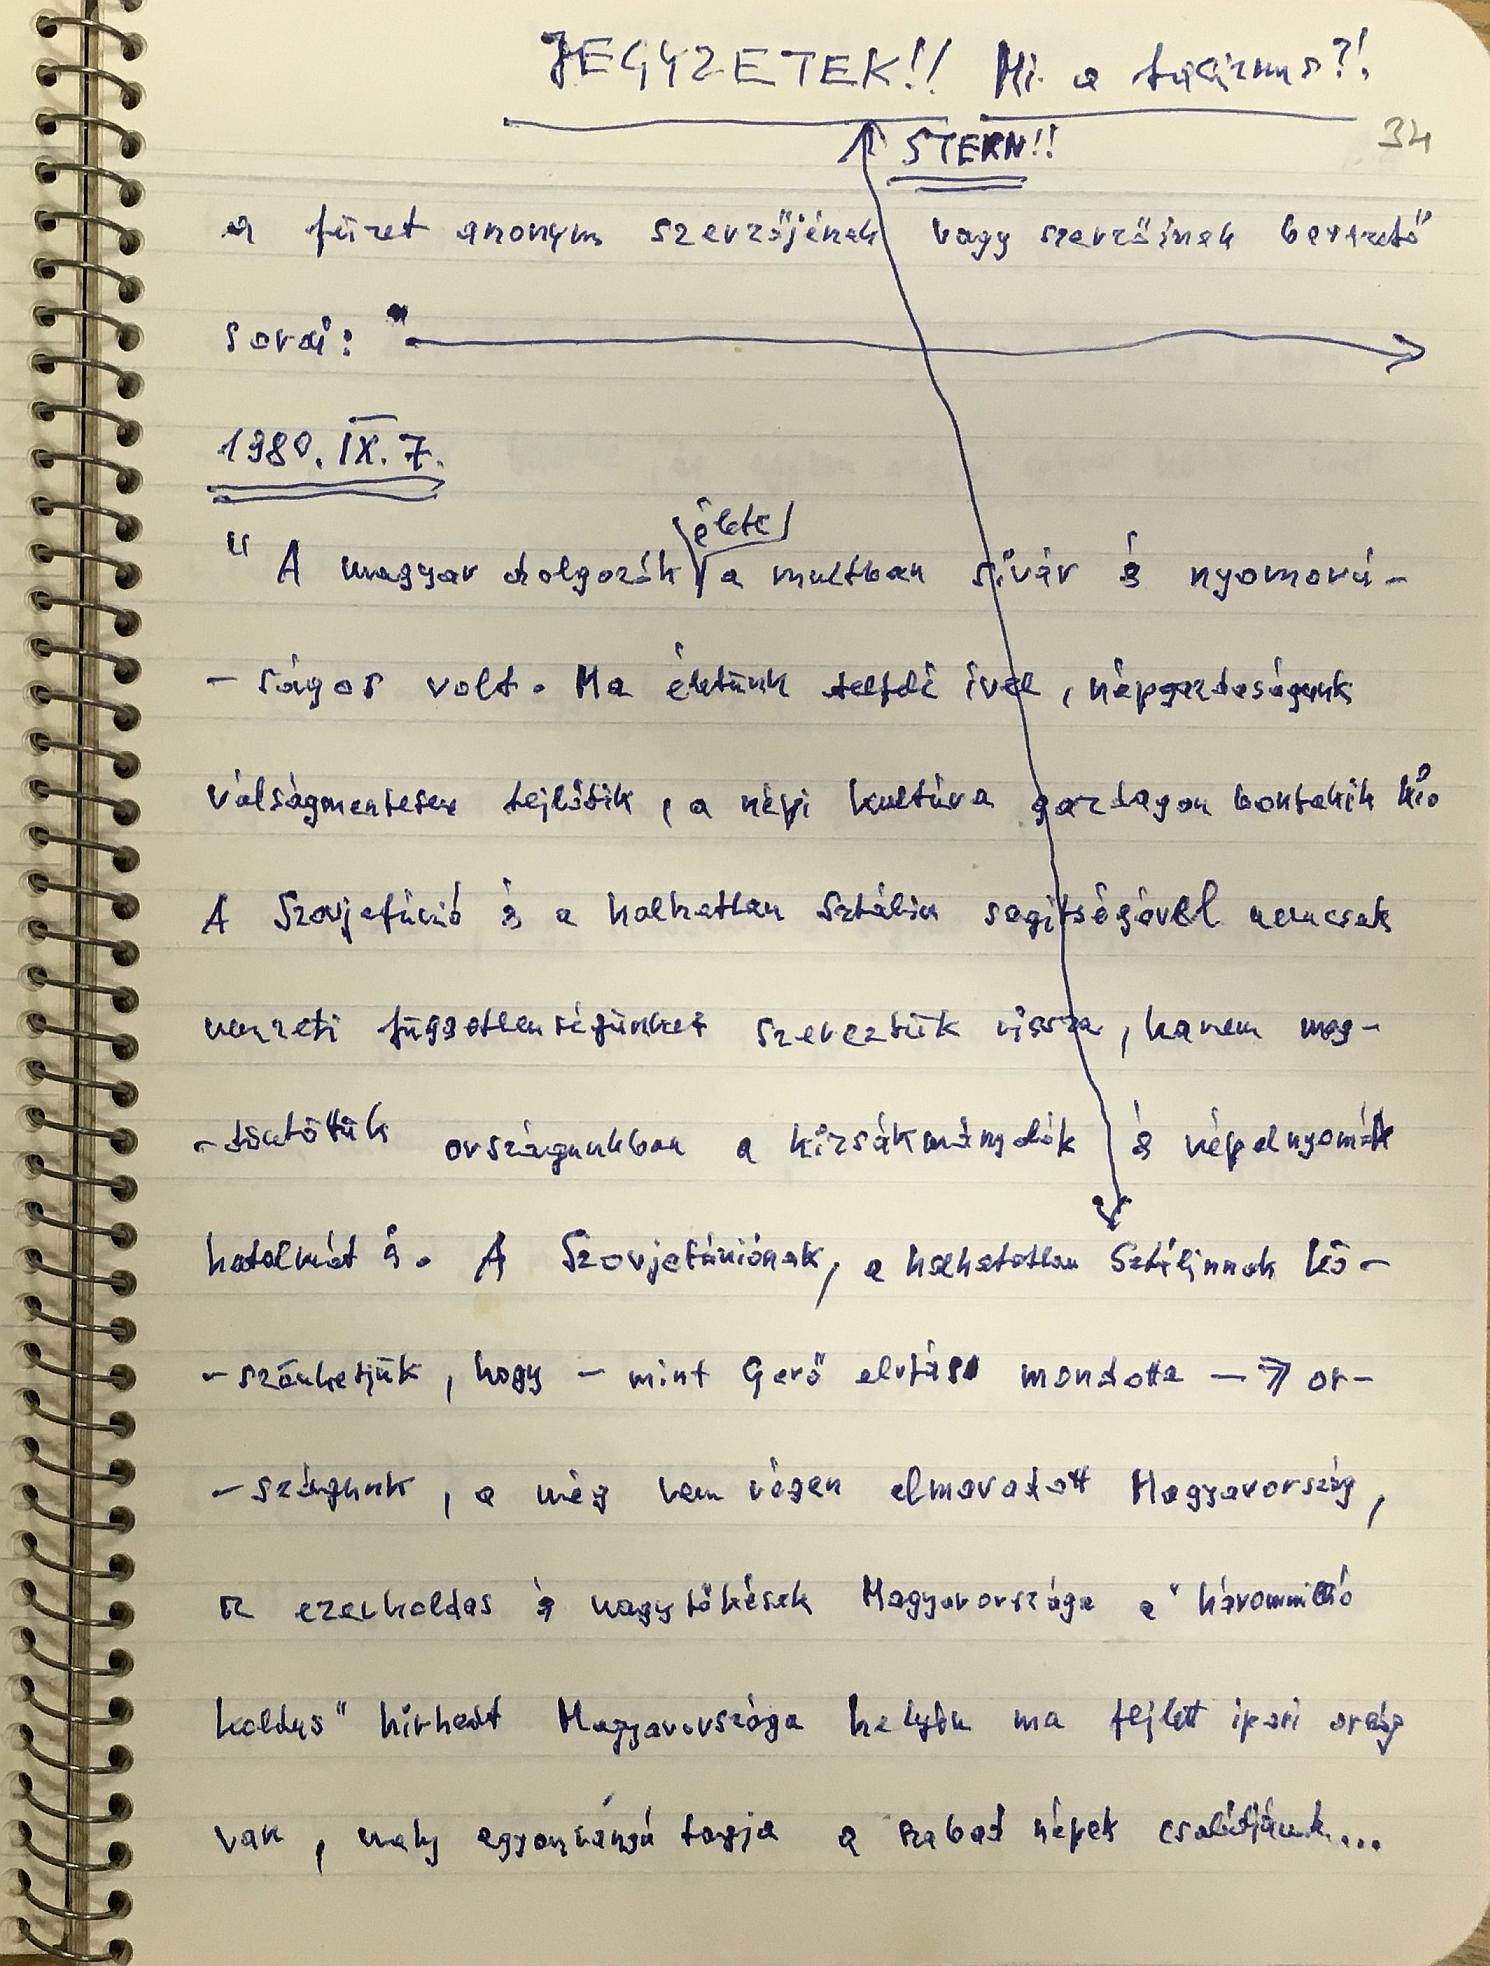 JEGYZETEK!! Mi a fasizmus?!
STERN!!
34
a füzet anonym szerzőjének vagy szerzőinek bevezető
sorai:
1980. IX. 7.
élete
" A magyar dolgozók a multban sivár és nyomorú-
- ságos volt. Ma életünk felfelé ível, népgazdaságunk
válságmentesen fejlődik, a népi kultúra gazdagon bontakik ki.
A Szovjetúnió és a halhatatlan Sztálin segítségével nemcsak
nemzeti függetlenségünket szereztük vissza, hanem meg-
-döntöttük országunkban a kizsákmányolók és népelnyomók
hatalmát is. A Szovjetúniónak, a halhatatlan Sztálinnak kö-
- szönhetjük, hogy - mint Gerő elvtárs mondotta - or-
- szágunk, a még nem régen elmaradott Magyarország,
az ezerholdas és nagytőkések Magyarországa a "hárommillió
koldus" hírhedt Magyarországa helyén ma fejlett ipari ország
van, mely egyenrangú tagja a szabad népek családjának...